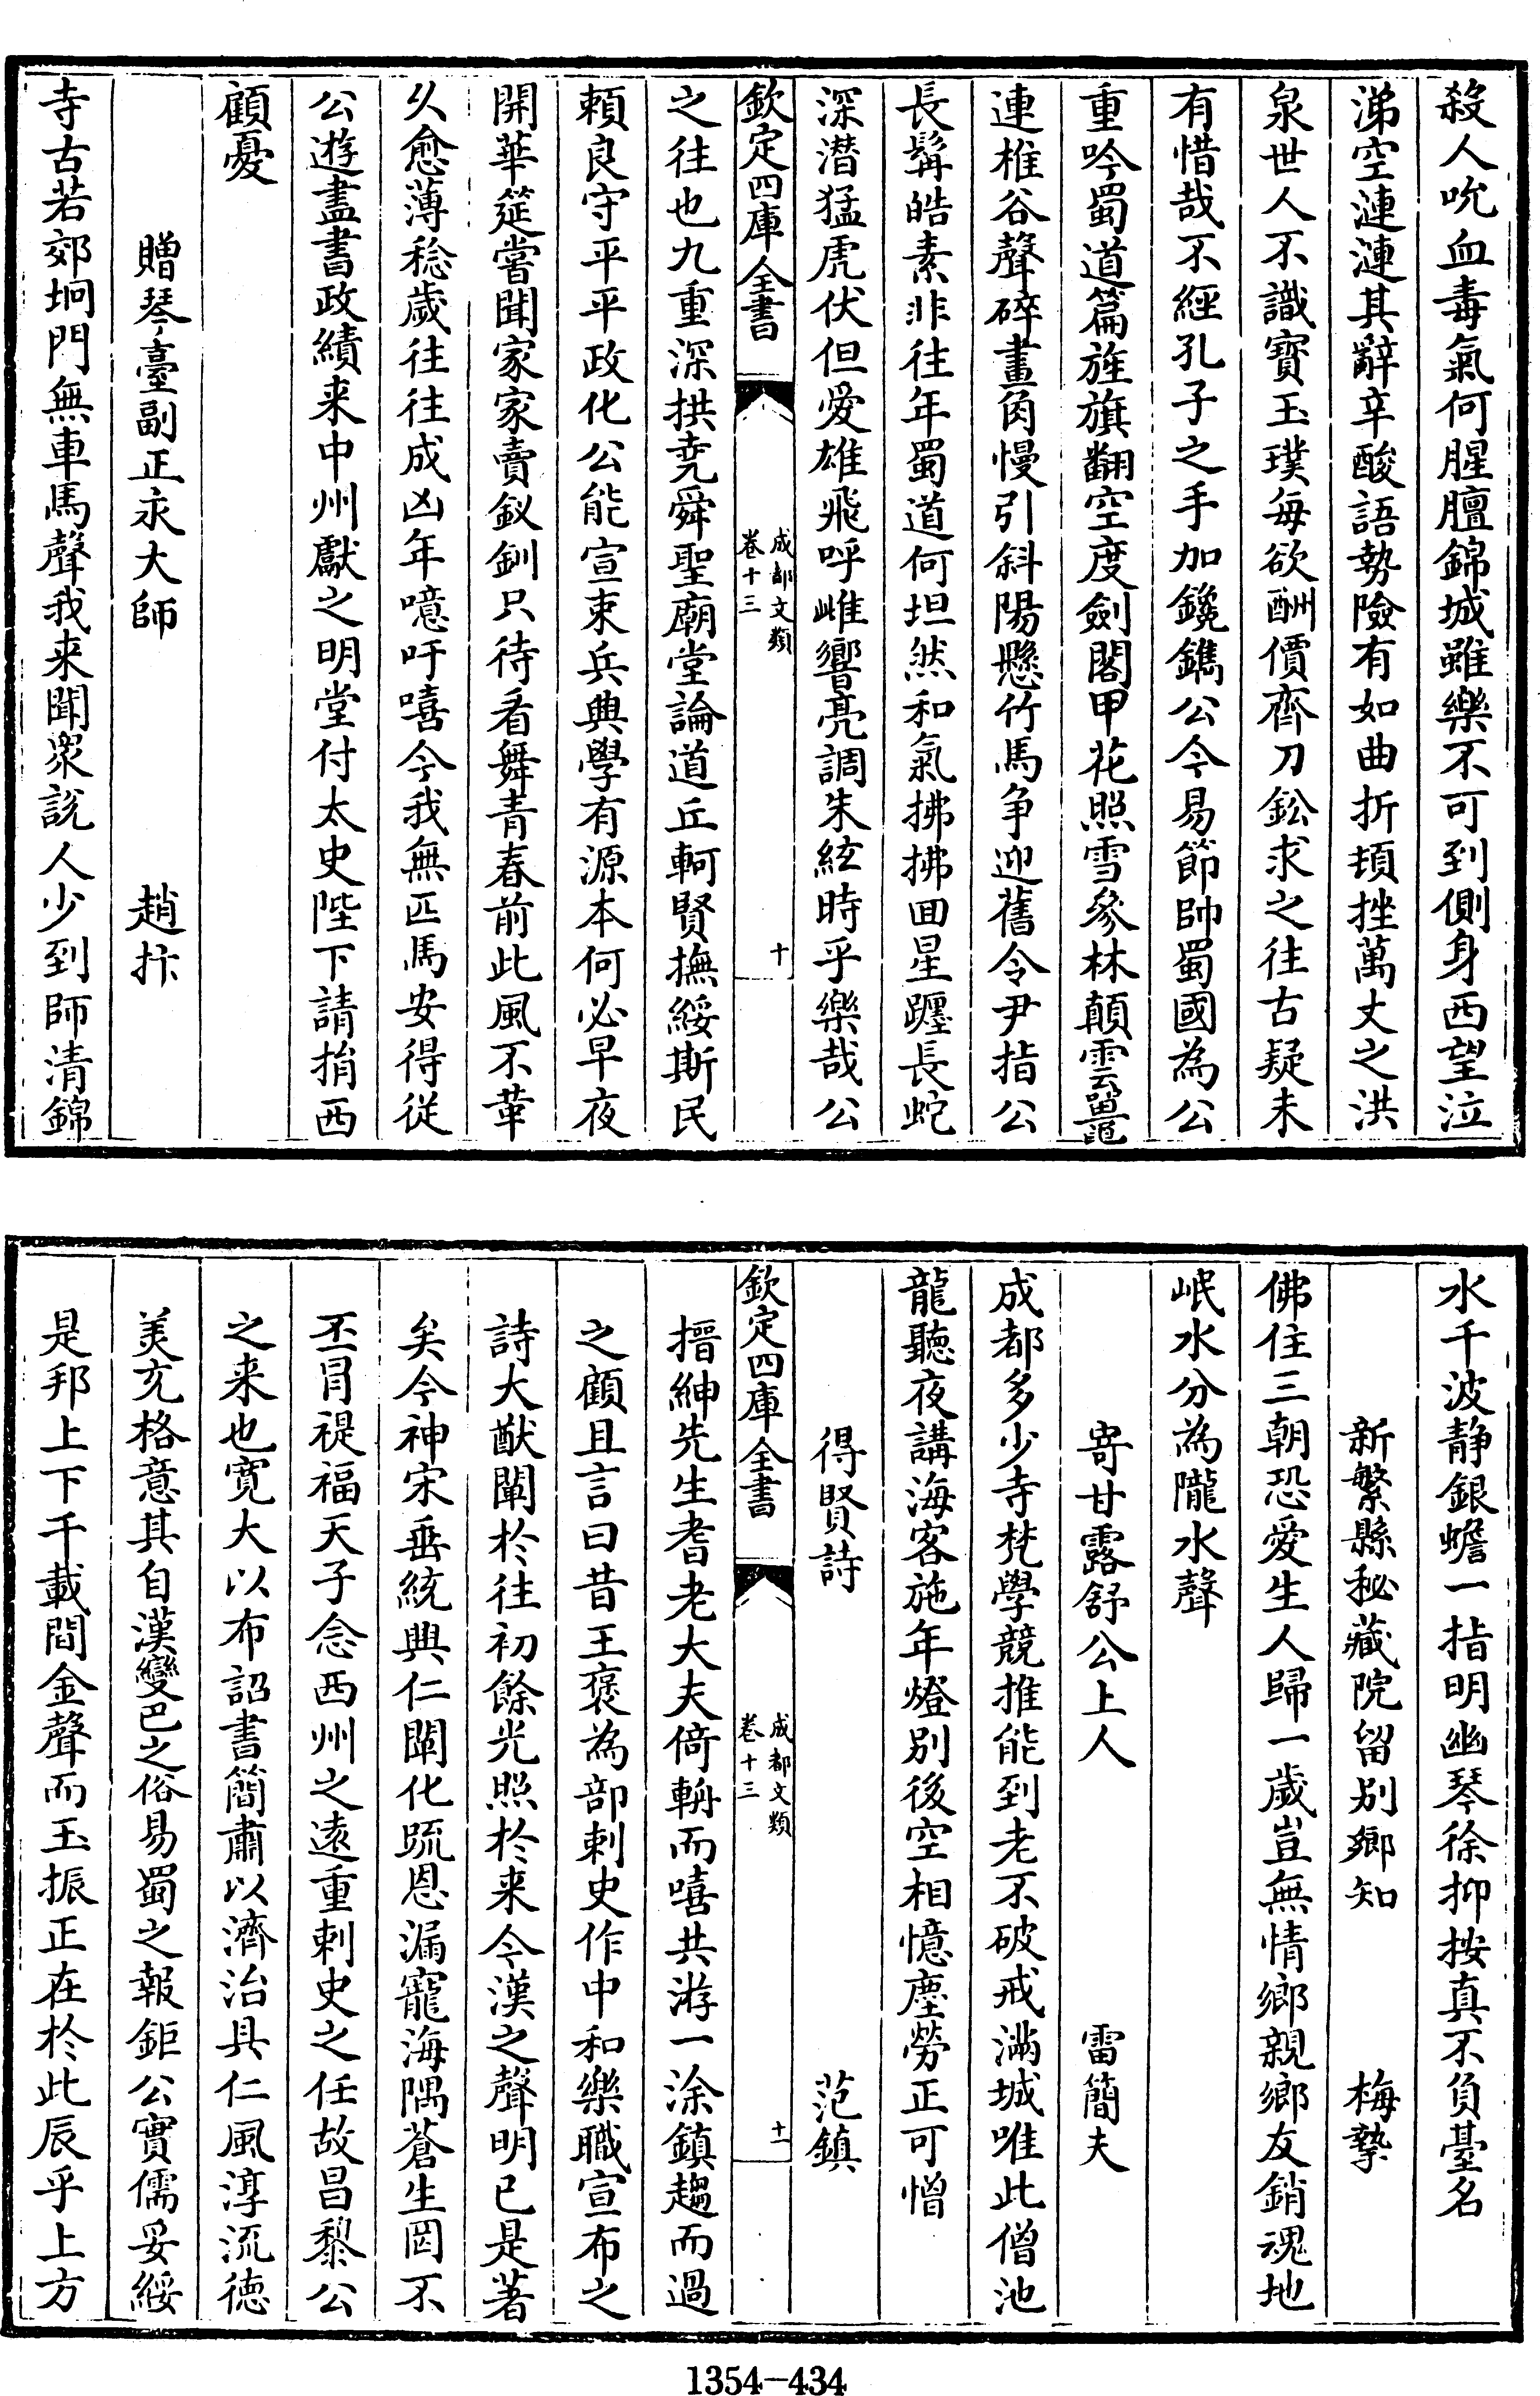 殺人吮血毒氣何腥膻錦城雖樂不可到側身西望泣
涕空漣漣其辭辛酸語勢險有如曲折頓挫萬丈之洪
泉世人不識寳玉璞每欲酬價齊刀鈆求之往古疑未
有惜哉不經孔子之手加鑱鐫公今易節帥蜀國為公
重吟蜀道篇旌旗翻空度劍閣甲花照雪參林顛雲罍鼉
連椎谷聲碎畫角慢引斜陽懸竹馬争迎舊令尹指公
長髯皓素非往年蜀道何坦然和氣拂拂回星躔長蛇
深潛猛虎伏但愛雄飛呼雌響亮調朱絃時乎樂哉公
欽定四庫全書
成都文類
卷十三
十
之往也九重深拱堯舜聖廟堂論道丘軻賢撫綏斯民
賴良守平平政化公能宣束兵興學有源本何必早夜
開華筵嘗聞家家賣釵釧只待看舞青春前此風不革
久愈薄稔歲往往成凶年噫吁嘻今我無匹馬安得従
公遊盡書政績来中州獻之明堂付太史陛下請捎西
顧憂
贈琴臺副正永大師
趙抃
寺古若郊坰門無車馬聲我来聞衆説人少到師清錦
水千波静銀蟾一指明幽琴徐抑按真不負臺名
新繁縣秘藏院留别鄉知
梅摯
佛住三朝恐愛生人歸一歲豈無情鄉親鄉友銷魂地
岷水分為隴水聲
寄甘露舒公上人
雷簡夫
成都多少寺梵學競推能到老不破戒滿城唯此僧池
龍聽夜講海客施年燈别後空相憶塵勞正可憎
得賢詩
范鎮
欽定四庫全書
成都文類
卷十三
十一
搢紳先生耆老大夫倚輈而嘻共游一涂鎮趨而過
之顧且言曰昔王褒為部刺史作中和樂職宣布之
詩大猷闡於往初餘光照於来今漢之聲明已是著
矣今神宋垂統興仁闡化疏恩漏寵海隅蒼生罔不
丕冐禔福天子念西州之遠重刺史之任故昌黎公
之来也寛大以布詔書簡肅以濟治具仁風淳流徳
美充格意其自漢變巴之俗易蜀之報鉅公實儒妥綏
是邦上下千載間金聲而玉振正在於此辰乎上方
1354-434